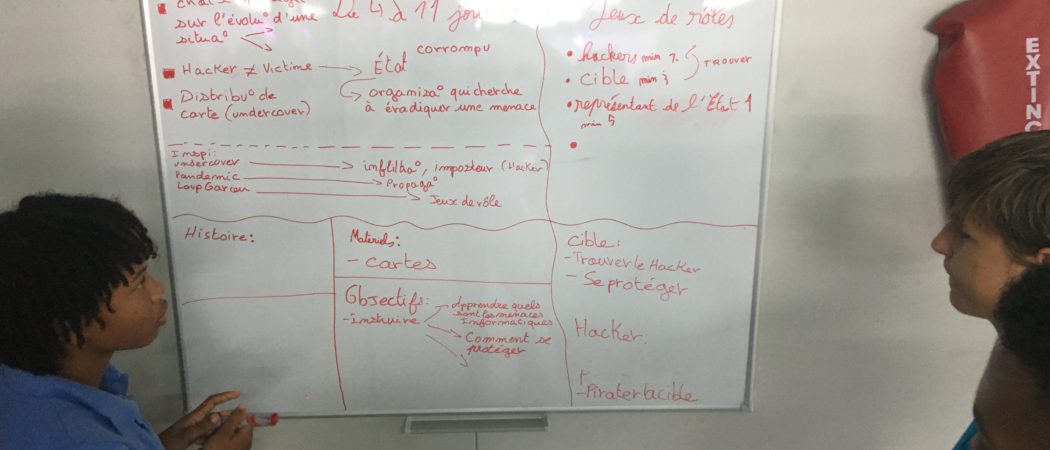 sur l'évolu° d'une
situa°
De 4 à 11 jou
Hacker ≠ Victime
État
corrompu
organisa° qui cherche
à éradiquer une menace
Distribu° de
carte (undercover)
Jeux de rôles
hackers min
cible min
TROUVER
représentant de l'État 1
min
Inspi:
undercover
infiltra°, imposteur (Hacker)
Pandemic
Propaga°
Loup Garou
Jeux de rôle
Histoire:
Materiels:
- cartes
Objectifs:
- Instruire
Apprendre quels
sont les menaces
Informatiques
Comment se
protéger
Cible:
- Trouver le Hacker
- Se protéger
Hacker:
- Pirater la cible
EXTINC